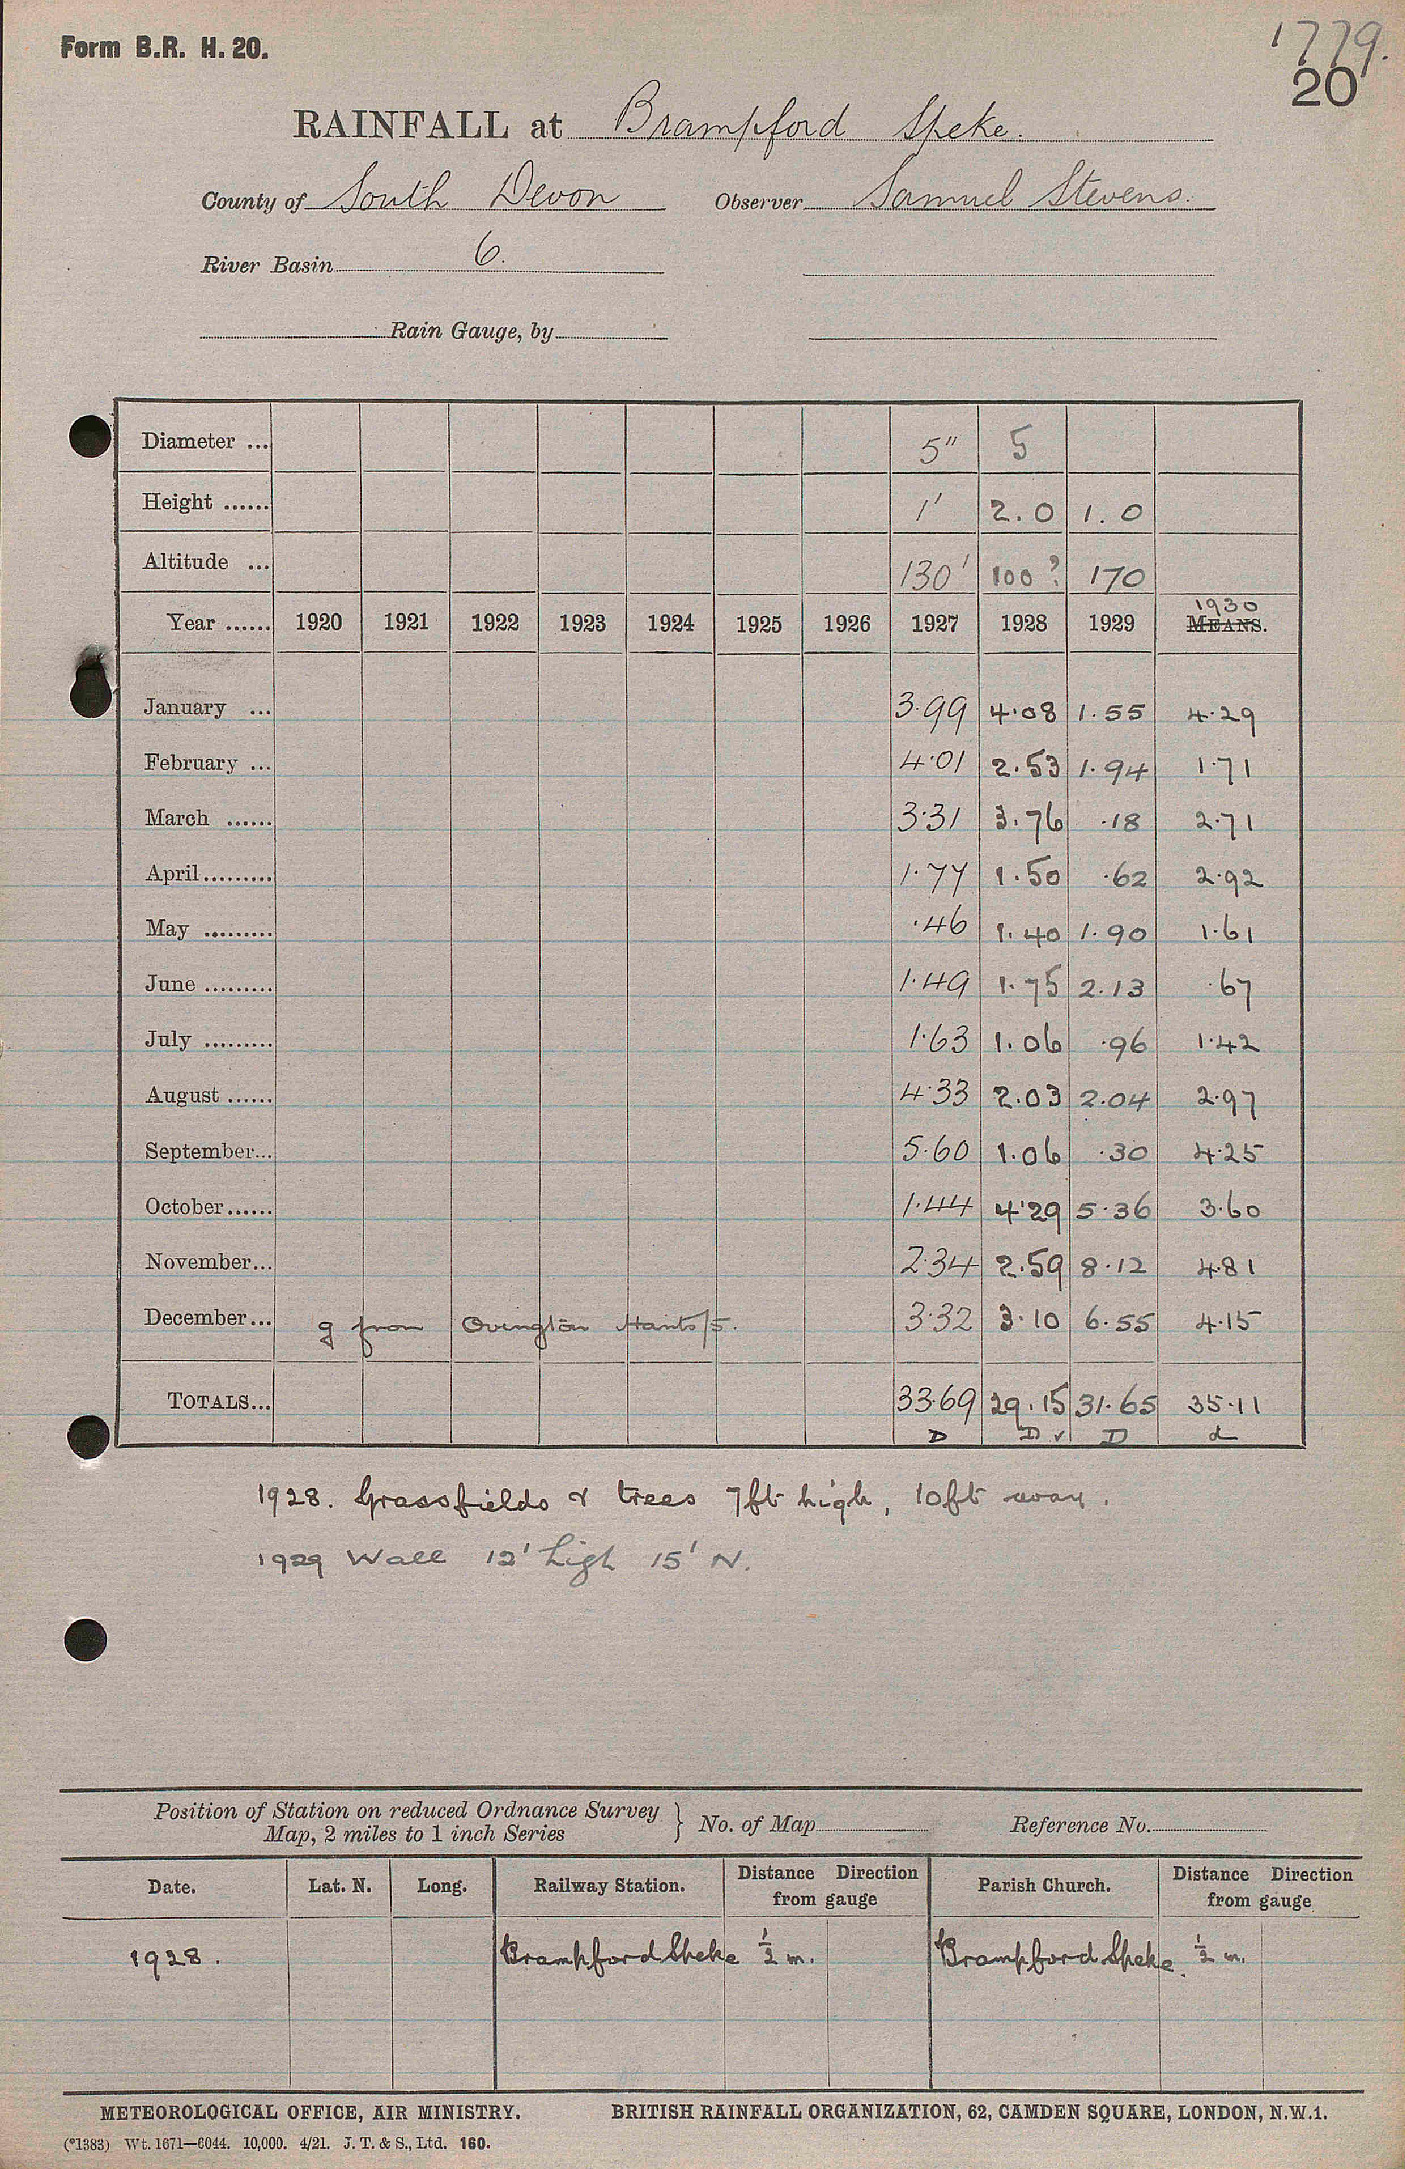 Form B.R. H. 20.
1779.
20
RAINFALL at Brampford Speke.
County of South Devon Observer Samuel Stevens.
River Basin 6.
Rain Gauge, by
Diameter ... 5" 5
Height ...... 1' 2.0 1.0
Altitude ... 130' 100? 170
1930
Year ...... 1920 1921 1922 1923 1924 1925 1926 1927 1928 1929 MEANS.
January ... 3.99 4.08 1.55 4.29
February ... 4.01 2.53 1.94 1.71
March ...... 3.31 3.76 .18 2.71
April ......... 1.77 1.50 .62 2.92
May ......... .46 1.40 1.90 1.61
June ......... 1.49 1.75 2.13 .67
July ......... 1.63 1.06 .96 1.42
August ...... 4.33 2.03 2.04 2.97
September... 5.60 1.06 .30 4.25
October...... 1.44 4.29 5.36 3.60
November... 2.34 2.59 8.12 4.81
December... g from Ovington Hants/5. 3.32 3.10 6.55 4.15
TOTALS... 33.69 29.15 31.65 35.11
D D v D d
1928. Grassfields & trees 7ft high, 10ft away.
1929 Wall 12' high 15' N.
Position of Station on reduced Ordnance Survey
Map, 2 miles to 1 inch Series } No. of Map Reference No.
Date. Lat. N. Long. Railway Station. Distance Direction from gauge Parish Church. Distance Direction from gauge
1928. Brampford Speke 1/2 m. Brampford Speke. 1/2 m.
METEOROLOGICAL OFFICE, AIR MINISTRY. BRITISH RAINFALL ORGANIZATION, 62, CAMDEN SQUARE, LONDON, N.W.1.
(*1383) Wt. 1671—6044. 10,000. 4/21. J. T. & S., Ltd. 160.